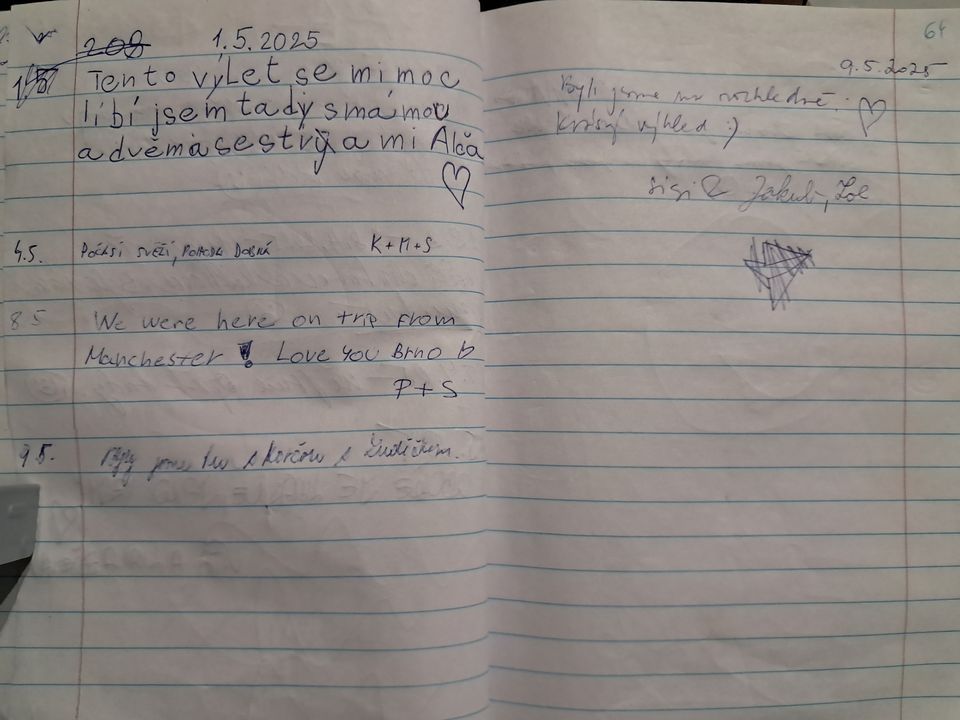 1.5.2025
Tento výLet se mi moc
líbí jsem tady s mámou
a dvěma sestry a mi Alča
4.5. Počasí svěží, pohoda dobrá K+M+S
8 5 We were here on trip from
Manchester ! Love you Brno b
P + S
9 5. jsme s s
64
9.5.2025
Byli jsme na rozhledně.
Krásný výhled :)
Sisi & Jakub, Zoe